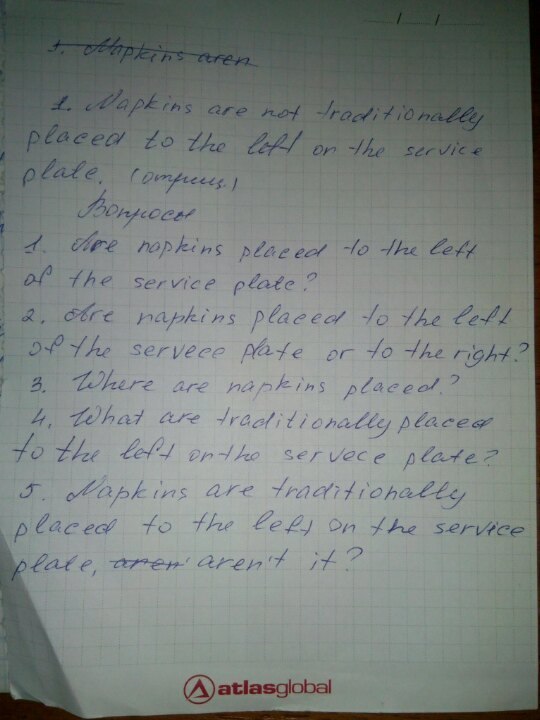 1. Napkins aren
1. Napkins are not traditionally
placed to the left on the service
plate. (отриц)
Вопросы
1. Are napkins placed to the left
of the service plate?
2. Are napkins placed to the left
of the servece plate or to the right?
3. Where are napkins placed?
4. What are traditionally placed
to the left on the servece plate?
5. Napkins are traditionally
placed to the left on the service
plate, aren' aren't it?
atlasglobal